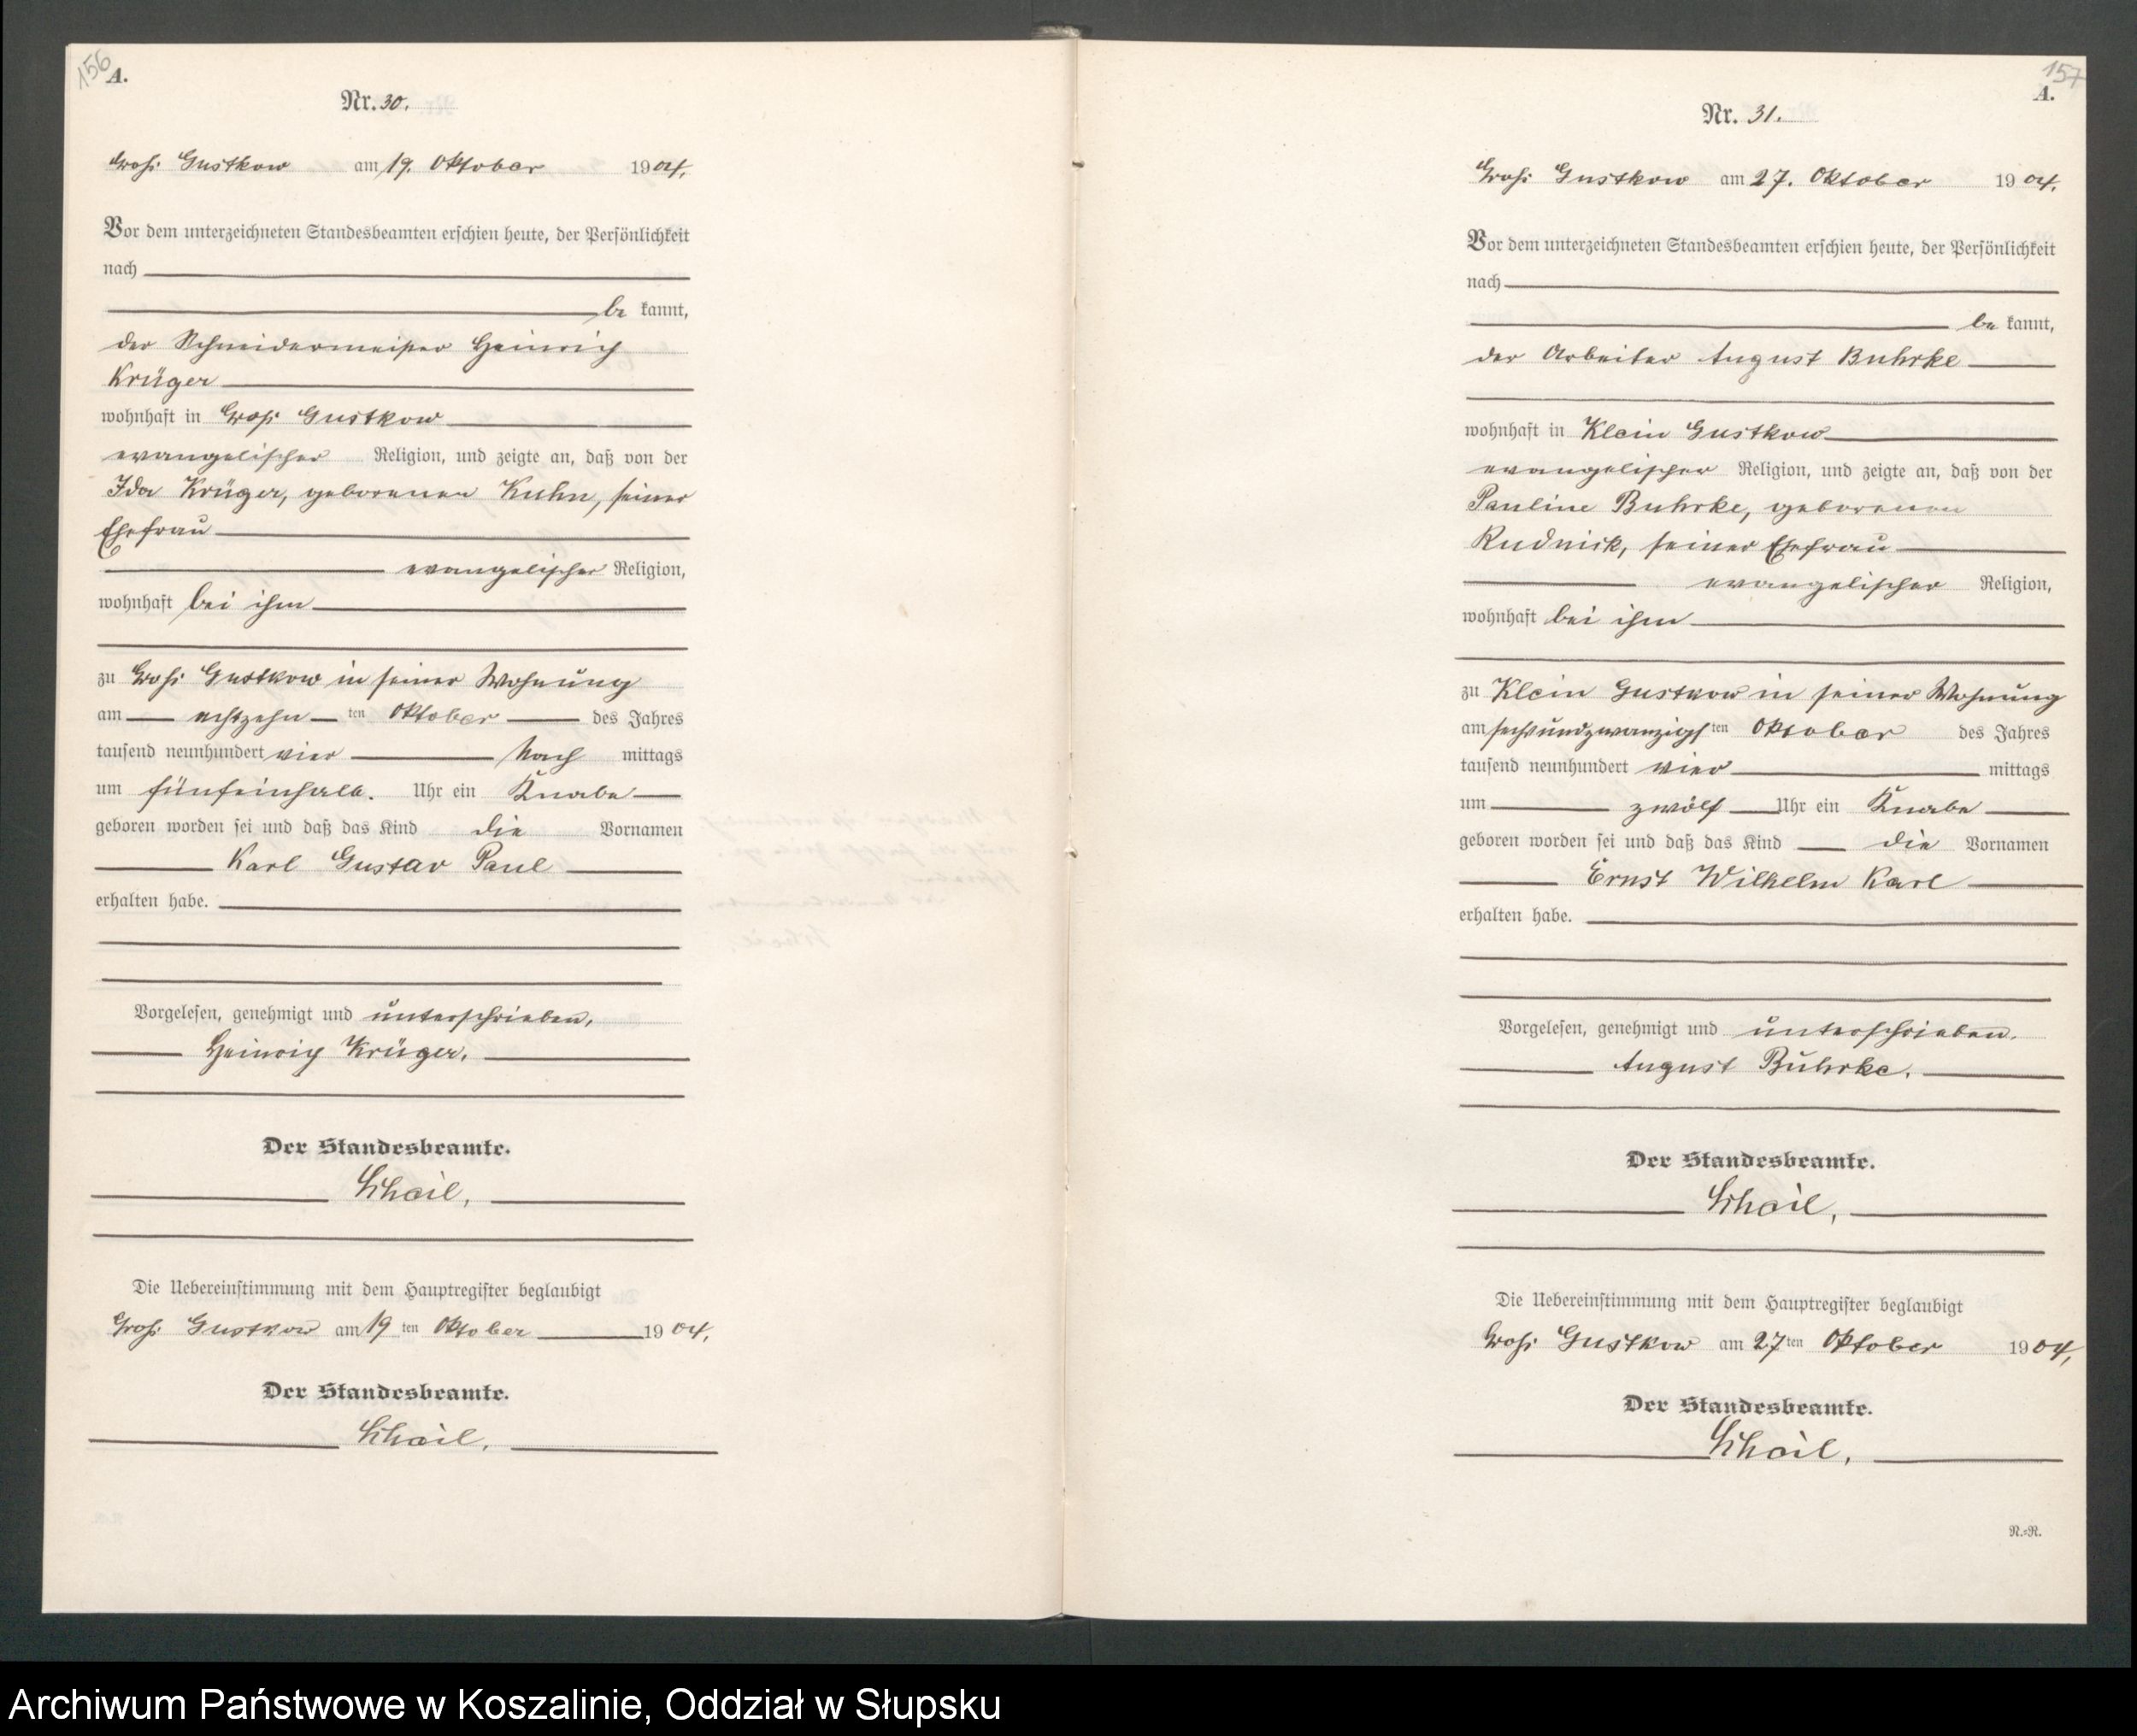 156
A.
Nr. 30.
Groß Gustkow am 19. Oktober 1904.
Vor dem unterzeichneten Standesbeamten erschien heute, der Persönlichkeit
nach
be kannt,
der Schneidermeister Heinrich
Krüger
wohnhaft in Groß Gustkow
evangelischer Religion, und zeigte an, daß von der
Ida Krüger, geborenen Kuhn, seiner
Ehefrau
evangelischer Religion,
wohnhaft bei ihm
zu Groß Gustkow in seiner Wohnung
am achtzehn ten Oktober des Jahres
tausend neunhundert vier Nach mittags
um fünfeinhalb. Uhr ein Knabe
geboren worden sei und daß das Kind die Vornamen
Karl Gustav Paul
erhalten habe.
Vorgelesen, genehmigt und unterschrieben,
Heinrich Krüger.
Der Standesbeamte.
Die Uebereinstimmung mit dem Hauptregister beglaubigt
Groß Gustkow am 19 ten Oktober 1904.
Der Standesbeamte.
157
A.
Nr. 31.
Groß Gustkow am 27. Oktober 1904.
Vor dem unterzeichneten Standesbeamten erschien heute, der Persönlichkeit
nach
be kannt,
der Arbeiter August Buhrke
wohnhaft in Klein Gustkow
evangelischer Religion, und zeigte an, daß von der
Pauline Buhrke, geborenen
Rudnick, seiner Ehefrau
evangelischer Religion,
wohnhaft bei ihm
zu Klein Gustkow in seiner Wohnung
am sechsundzwanzigsten Oktober des Jahres
tausend neunhundert vier mittags
um zwölf Uhr ein Knabe
geboren worden sei und daß das Kind die Vornamen
Ernst Wilhelm Karl
erhalten habe.
Vorgelesen, genehmigt und unterschrieben.
August Buhrke.
Der Standesbeamte.
Die Uebereinstimmung mit dem Hauptregister beglaubigt
Groß Gustkow am 27ten Oktober 1904,
Der Standesbeamte.
N.=R.
Archiwum Państwowe w Koszalinie, Oddział w Słupsku